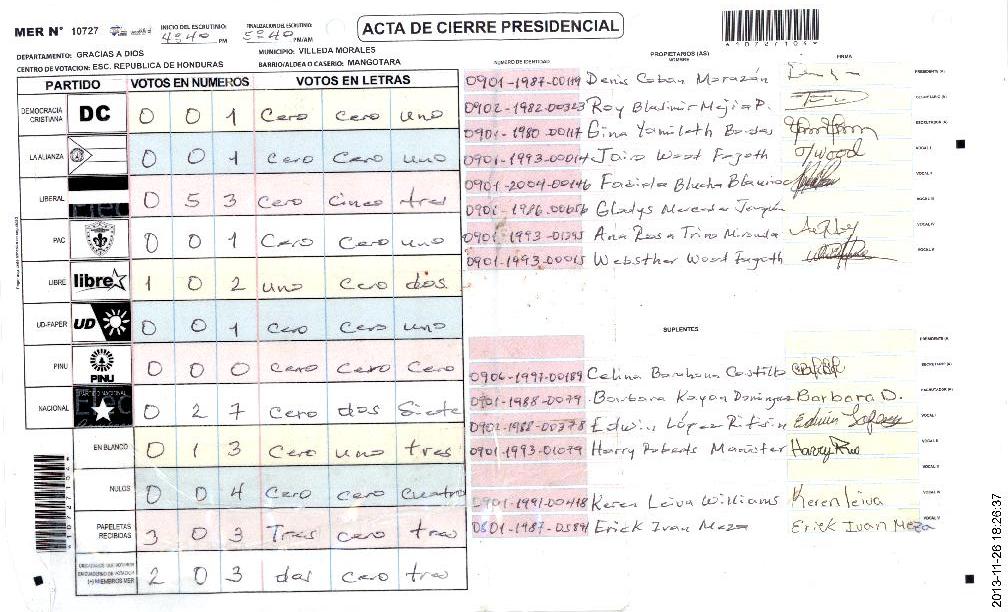 MER N° 10727
INICIO DEL ESCRUTINIO: 4:40 PM
FINALIZACION DEL ESCRUTINIO: 5:40 PM/AM
ACTA DE CIERRE PRESIDENCIAL
DEPARTAMENTO: GRACIAS A DIOS
MUNICIPIO: VILLEDA MORALES
CENTRO DE VOTACION: ESC. REPUBLICA DE HONDURAS
BARRIO/ALDEA O CASERIO: MANGOTARA
PARTIDO VOTOS EN NUMEROS VOTOS EN LETRAS
DEMOCRACIA CRISTIANA DC 0 0 1 Cero Cero uno
LA ALIANZA 0 0 1 Cero Cero uno
LIBERAL 0 5 3 Cero Cinco tres
PAC 0 0 1 Cero Cero uno
LIBRE libre 1 0 2 uno Cero dos
UD-FAPER UD 0 0 1 Cero Cero uno
PINU PINU 0 0 0 Cero Cero Cero
NACIONAL 0 2 7 Cero dos Siete
EN BLANCO 0 1 3 Cero uno tres
NULOS 0 0 4 Cero Cero cuatro
PAPELETAS RECIBIDAS 3 0 3 Tres cero tres
(+) MIEMBROS MER 2 0 3 dos cero tres
PROPIETARIOS (AS)
NUMERO DE IDENTIDAD NOMBRE FIRMA
0901-1987-00119 Denis Coban Morazón PRESIDENTE (A)
0902-1982-00323 Roy Bladimir Mejia P. SECRETARIO (A)
0901-1980-00117 Gina Yamileth ESCRUTADOR (A)
0901-1993-00014 Jairo Wood Fagoth J Wood VOCAL I
0901-2004-00146 Fabiola Blucha VOCAL II
Gladys VOCAL III
0901-1993-01395 Ana Rosa Trino Miranda VOCAL IV
0901-1993-00015 Websther Wood Fagoth VOCAL V
SUPLENTES
PRESIDENTE (A)
0906-1997-00189 Celina Barahona Castillo SECRETARIO (A)
0901-1988-0079 Barbara Kayan Dominguez Barbara D. ESCRUTADOR (A)
0902-1988-00378 Edwin López Edwin VOCAL I
0901-1993-01079 Harry Roberts Harry VOCAL II
VOCAL III
0901-1991-00418 Keren Leiva Williams Keren leiva VOCAL IV
0801-1987-05891 Erick Ivan Meza Erick Ivan Meza VOCAL V
2013-11-26 18:26:37